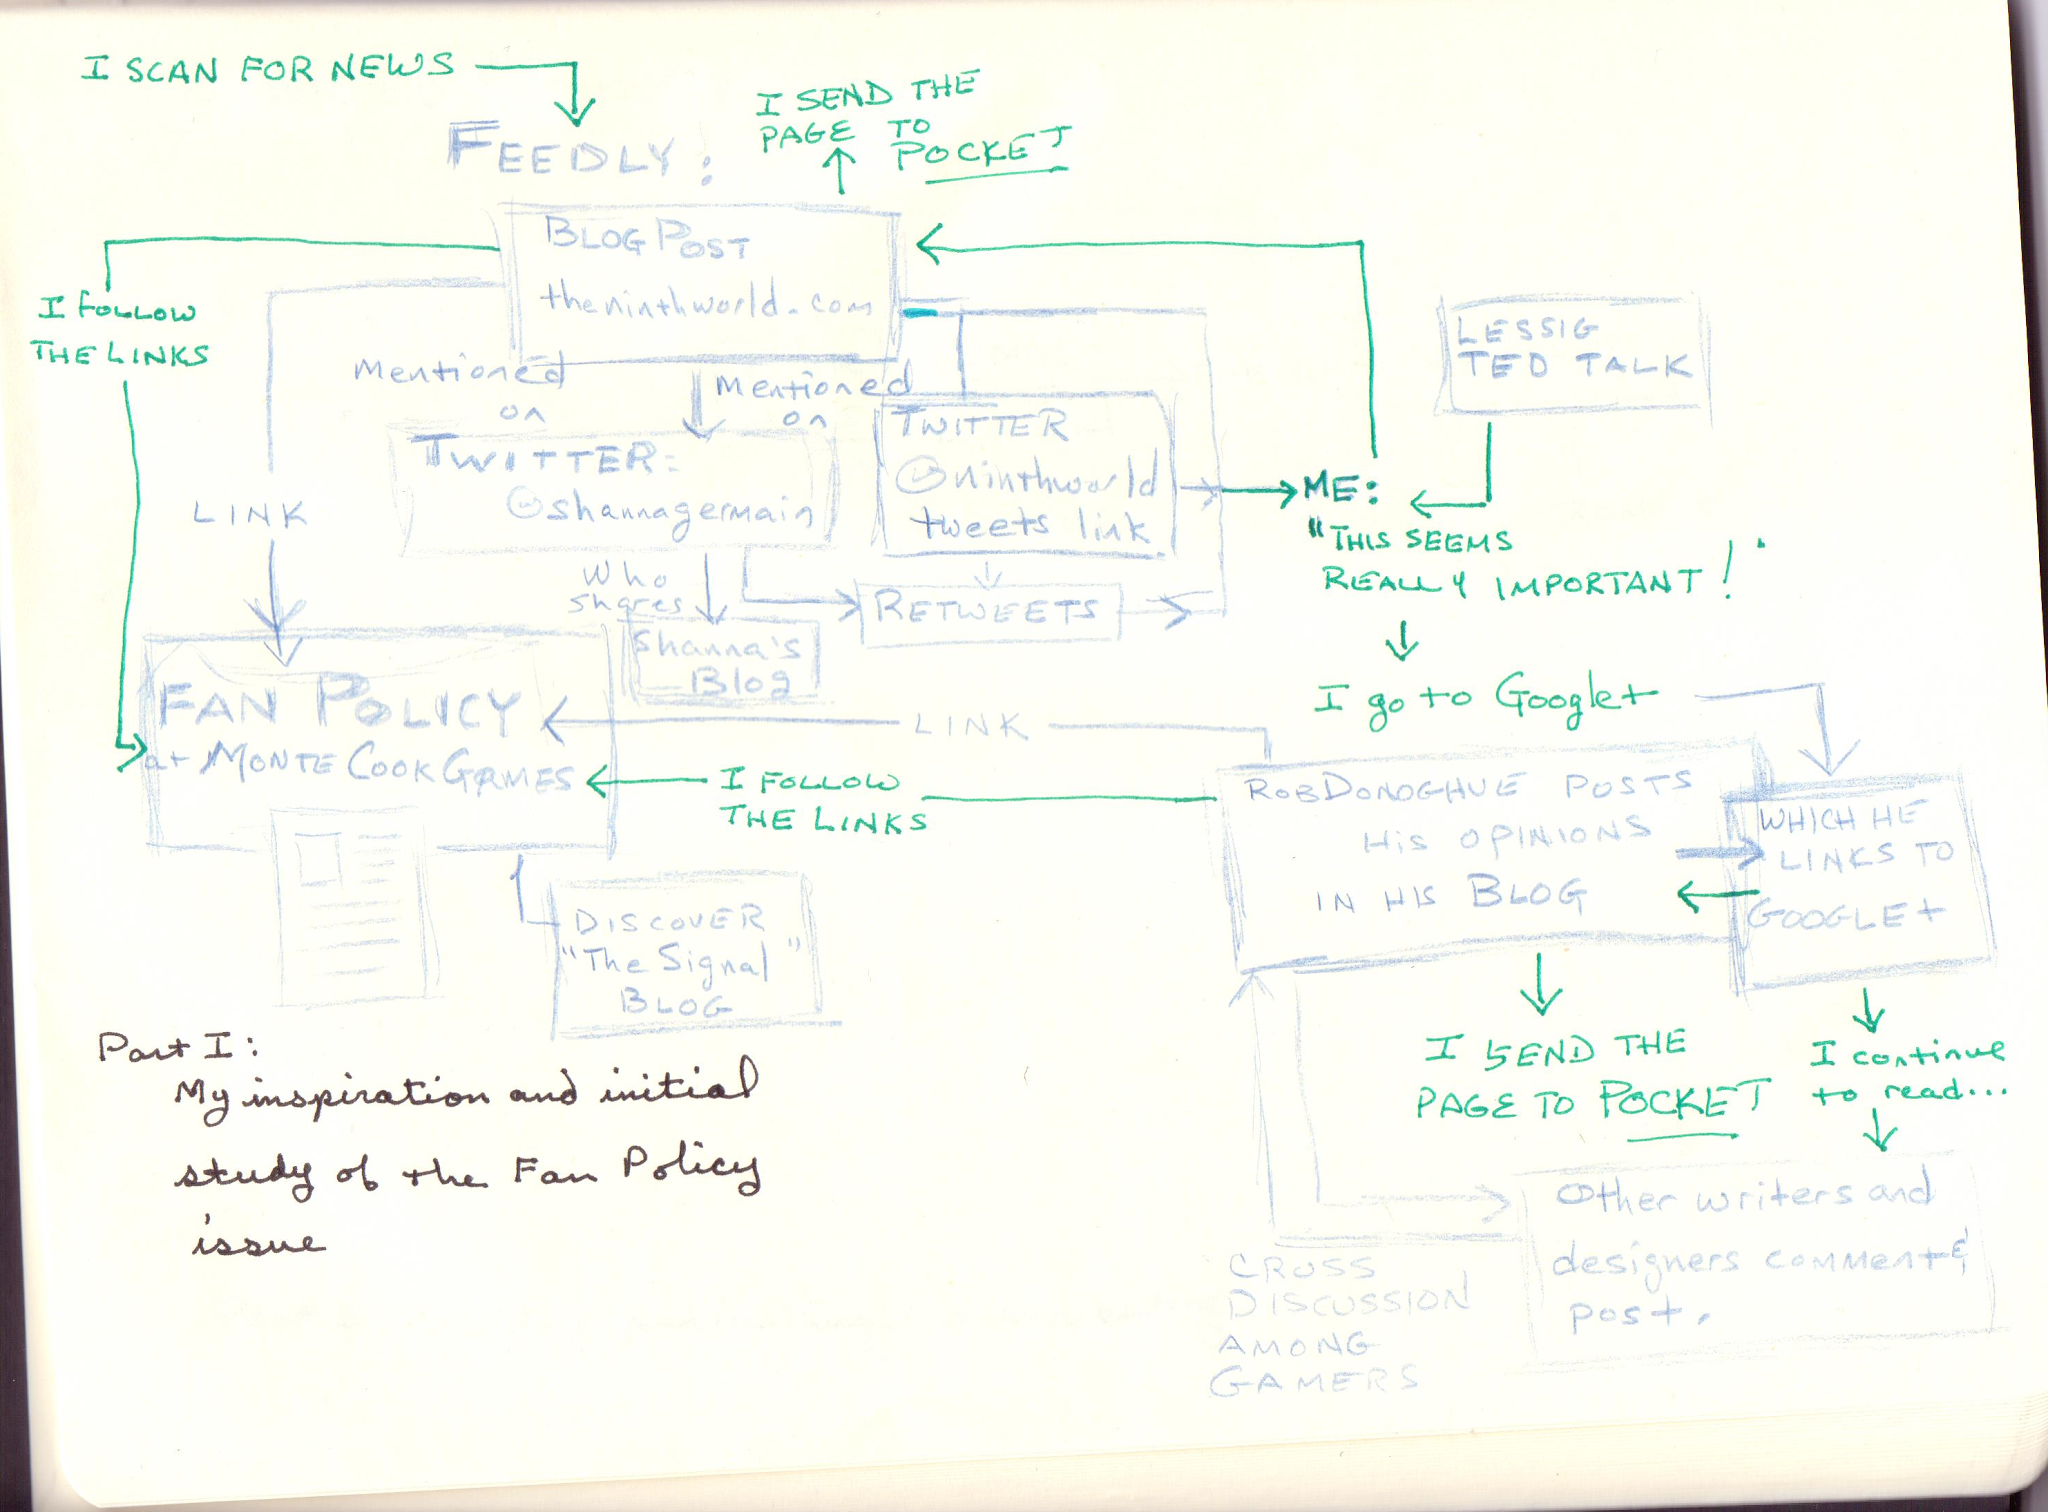 I SCAN FOR NEWS
FEEDLY:
I SEND THE
PAGE TO
POCKET
BLOG POST
theninthworld.com
I FOLLOW
THE LINKS
LESSIG
TED TALK
Mentioned
on
Mentioned
on
TWITTER:
@shannagermain
TWITTER
@ninthworld
tweets link
LINK
ME:
"THIS SEEMS
REALLY IMPORTANT!
Who
shares
Shanna's
Blog
RETWEETS
I go to Google+
FAN POLICY
at MONTE COOK GAMES
LINK
I FOLLOW
THE LINKS
ROB DONOGHUE POSTS
HIS OPINIONS
IN HIS BLOG
WHICH HE
LINKS TO
GOOGLE+
DISCOVER
"The Signal"
BLOG
I SEND THE
PAGE TO POCKET
I continue
to read...
Part I:
My inspiration and initial
study of the Fan Policy
issue
Other writers and
designers comment &
post.
CROSS
DISCUSSION
AMONG
GAMERS